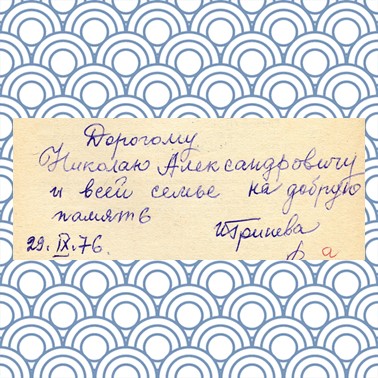 Дорогому
Николаю Александровичу
и всей семье на добрую
память
29. IX. 76. Гринева
а